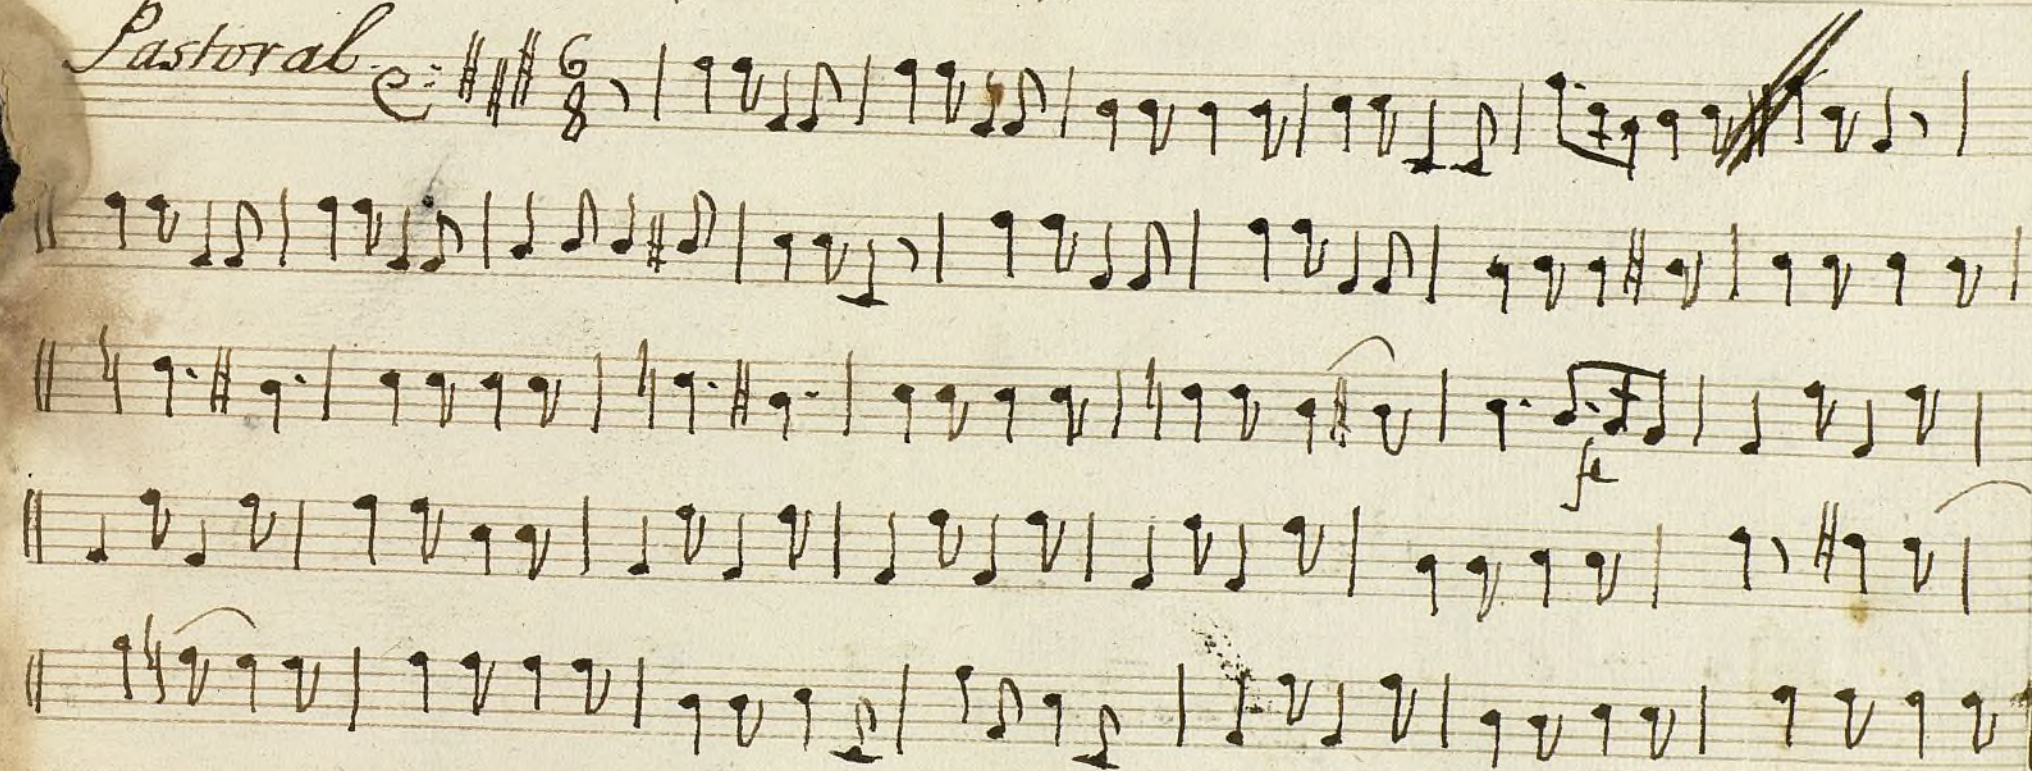 Pastoral
6
8
fe